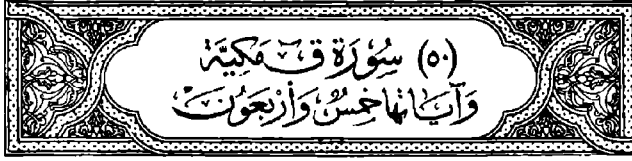 (٥٠) سُورَة ق مَكِيَّة
وَآيَاتُهَا خَمْسٌ وَأَرْبَعُونَ